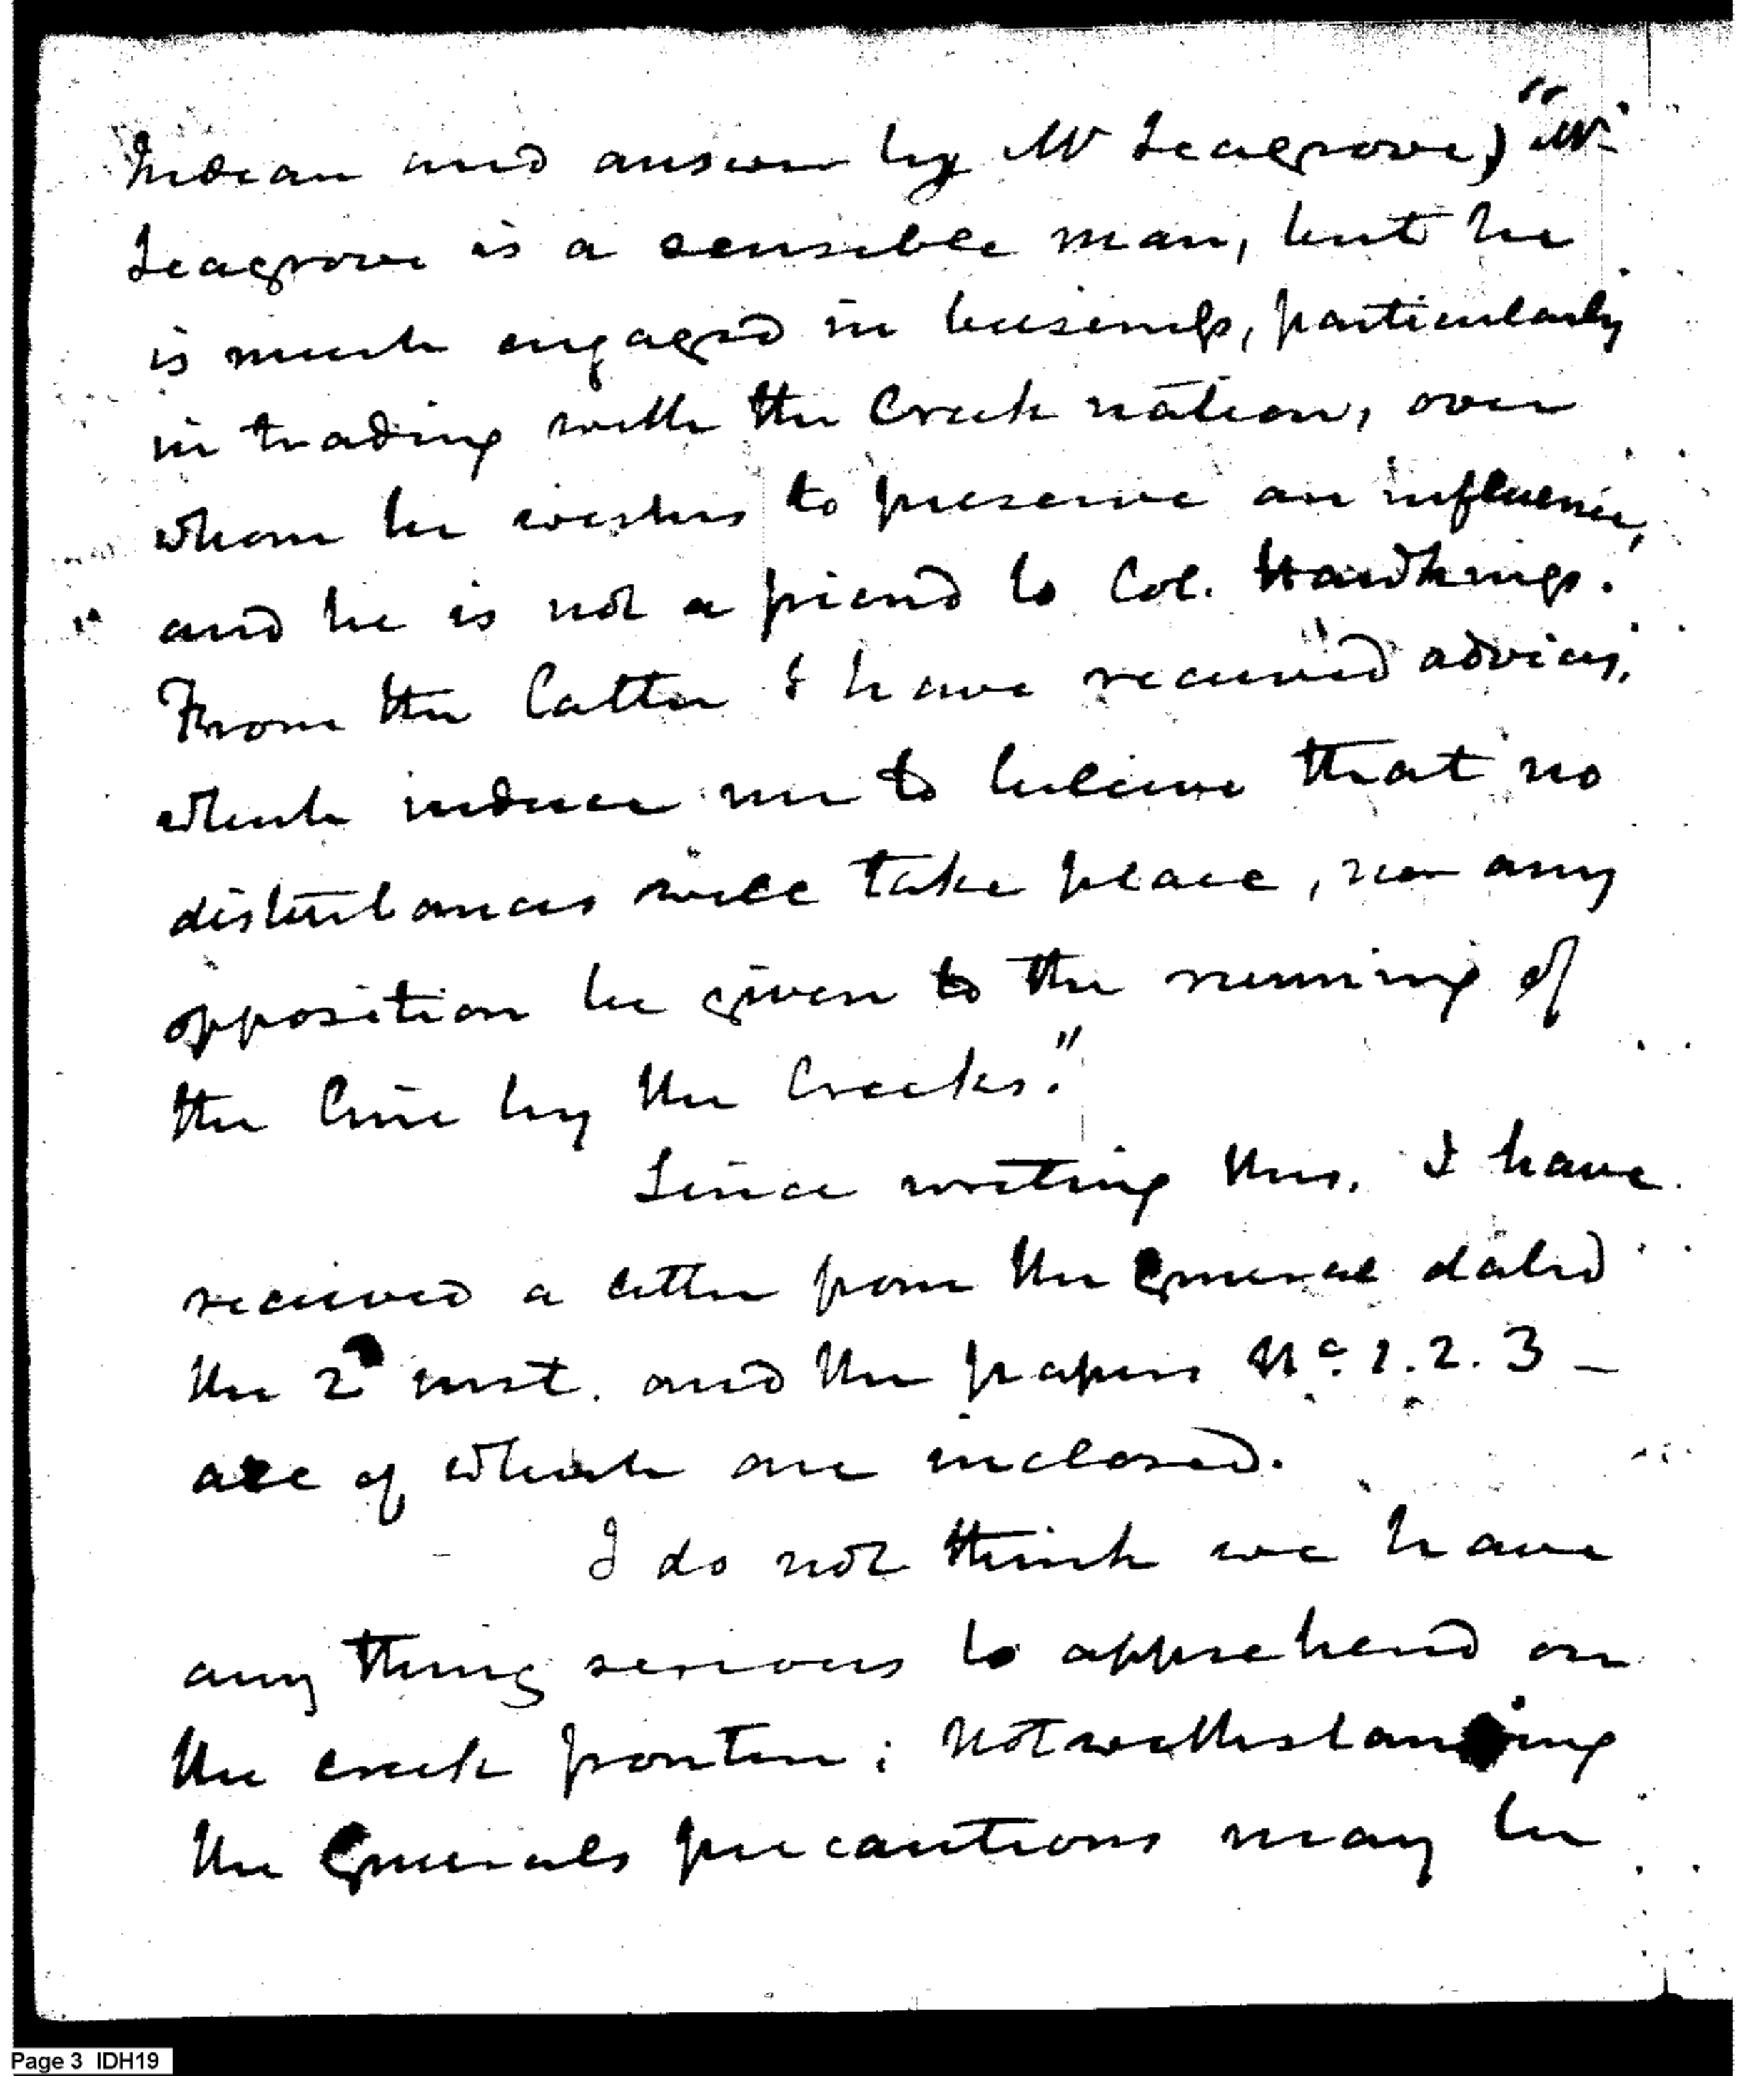 Indian and answer by Mr Seagrove) "Mr.
Seagrove is a sensible man, but he
is much engaged in business, particularly
in trading with the Creek nation, over
whom he wishes to preserve an influence,
" and he is not a friend to Col. Hawkings.
From the latter I have received advices,
which induce me to believe that no
disturbances will take place, nor any
opposition be given to the running of
the line by the Creeks."
Since writing this, I have
received a letter from the General dated
the 2d inst. and the papers No. 1. 2. 3 –
all of which are inclosed.
I do not think we have
any thing serious to apprehend on
the creek frontier; Notwithstanding
the Generals precautions may be
Page 3 IDH19